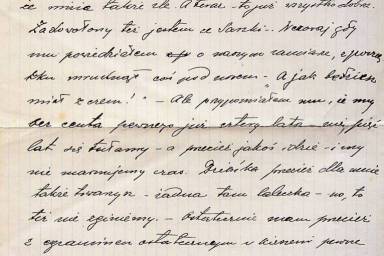 że mnie także źle. A teraz – to już wszystko dobre.
Zadowolony też jestem ze Saszki. – Wczoraj gdy
mu powiedziałem o naszym zamiarze,
mruknął coś pod nosem. – A jak będziem
mieli z czem! – Ale przypomniałem mu, że my
bez centa pewnego już cztery lata –
lat się tułamy – a przecież jakoś i my
nie marnujemy czas. przecież dla mnie
także – żadna tam lalecka – no, to
też nie zginiemy. – Ostatecznie mam przecież
z egzaminem ostatecznym w kieszeni pewne